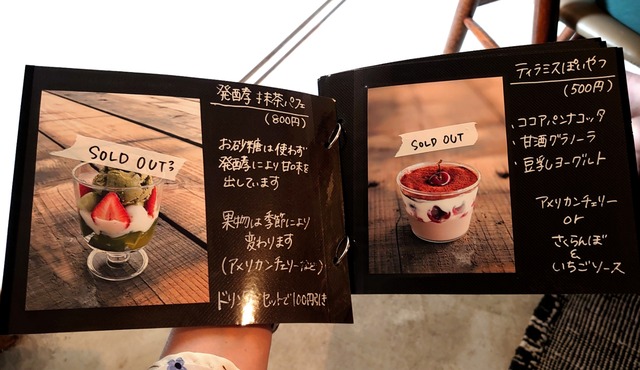 発酵抹茶パフェ
(800円)
SOLD OUT
お砂糖は使わず
発酵により甘味を
出しています
果物は季節により
変わります
(アメリカンチェリーなど)
ドリンクセットで100円引き
ティラミスぽいやつ
(500円)
SOLD OUT
・ココアパンナコッタ
・甘酒グラノーラ
・豆乳ヨーグルト
アメリカンチェリー
or
さくらんぼ
&
いちごソース